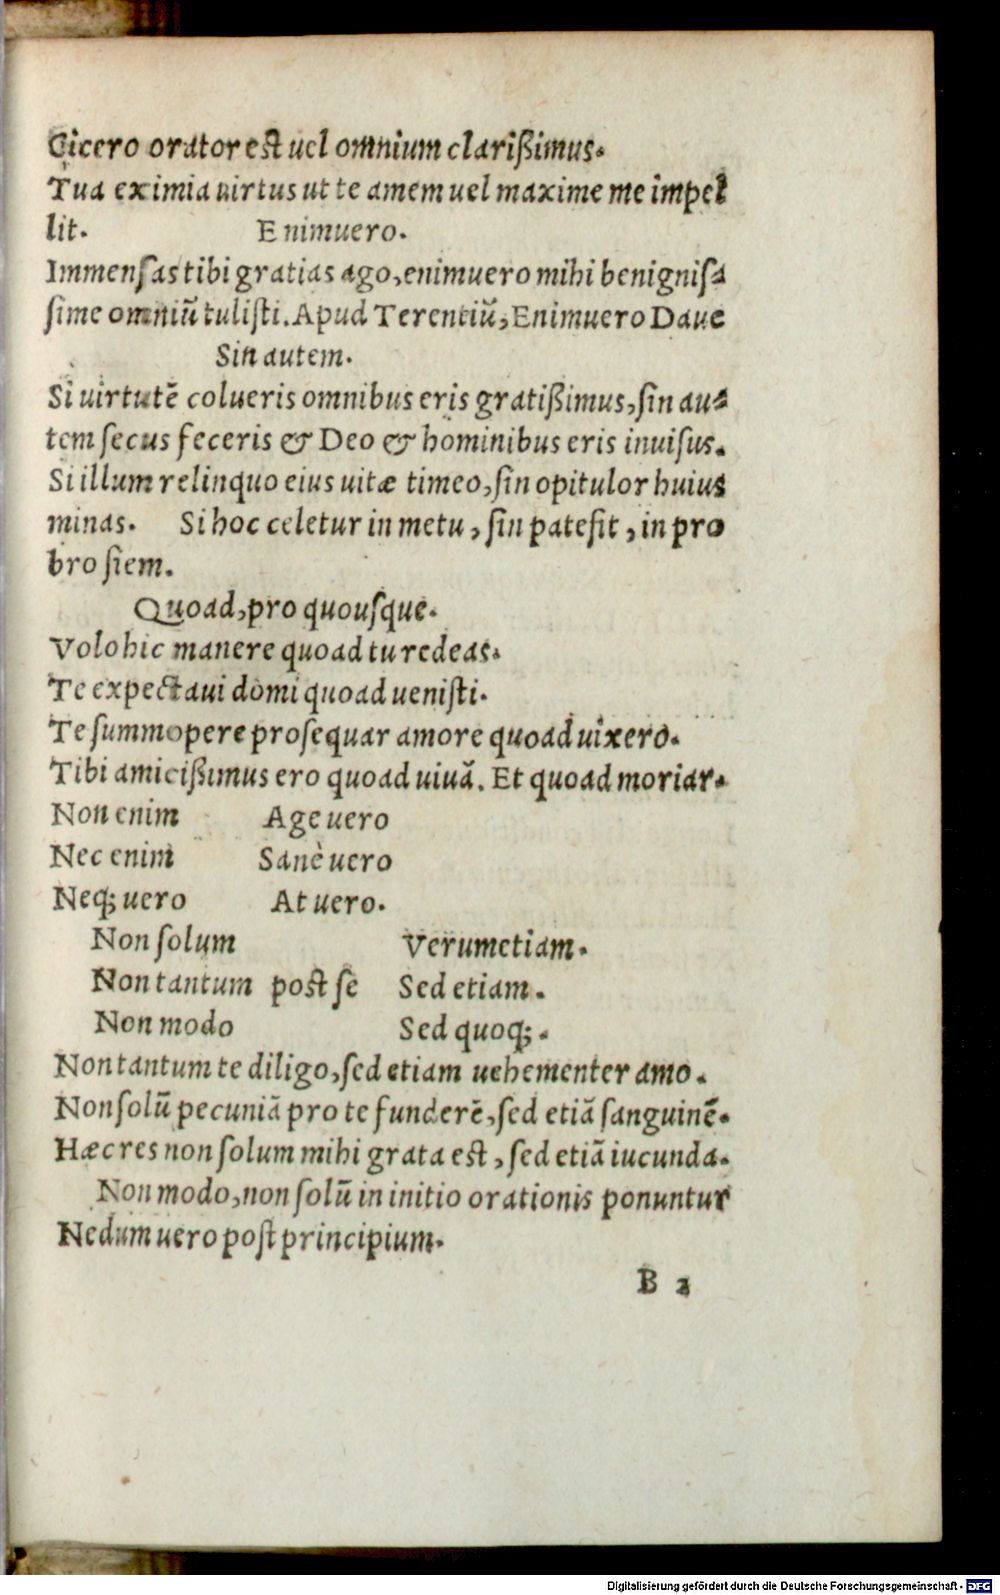 Cicero orator est uel omnium clarißimus.
Tua eximia uirtus ut te amem uel maxime me impel
lit. Enimuero.
Immensas tibi gratias ago, enimuero mihi benignis⸗
sime omniũ tulisti. Apud Terentiũ, Enimuero Daue
Sin autem.
Si uirtutẽ colueris omnibus eris gratißimus, sin au⸗
tem secus feceris & Deo & hominibus eris inuisus.
Si illum relinquo eius uitæ timeo, sin opitulor huius
minas. Si hoc celetur in metu, sin patefit, in pro
bro siem.
Quoad, pro quousque.
Volo hic manere quoad tu redeas.
Te expectaui domi quoad uenisti.
Te summopere prosequar amore quoad uixero.
Tibi amicißimus ero quoad uiuã. Et quoad moriar.
Non enim Age uero
Nec enim Sanè uero
Neq; uero At uero.
Non solum Verumetiam.
Non tantum post se Sed etiam.
Non modo Sed quoq;.
Non tantum te diligo, sed etiam uehementer amo.
Non solũ pecuniã pro te funderẽ, sed etiã sanguinẽ.
Hæc res non solum mihi grata est, sed etiã iucunda.
Non modo, non solũ in initio orationis ponuntur
Nedum uero post principium.
B 2
Digitalisierung gefördert durch die Deutsche Forschungsgemeinschaft - DFG